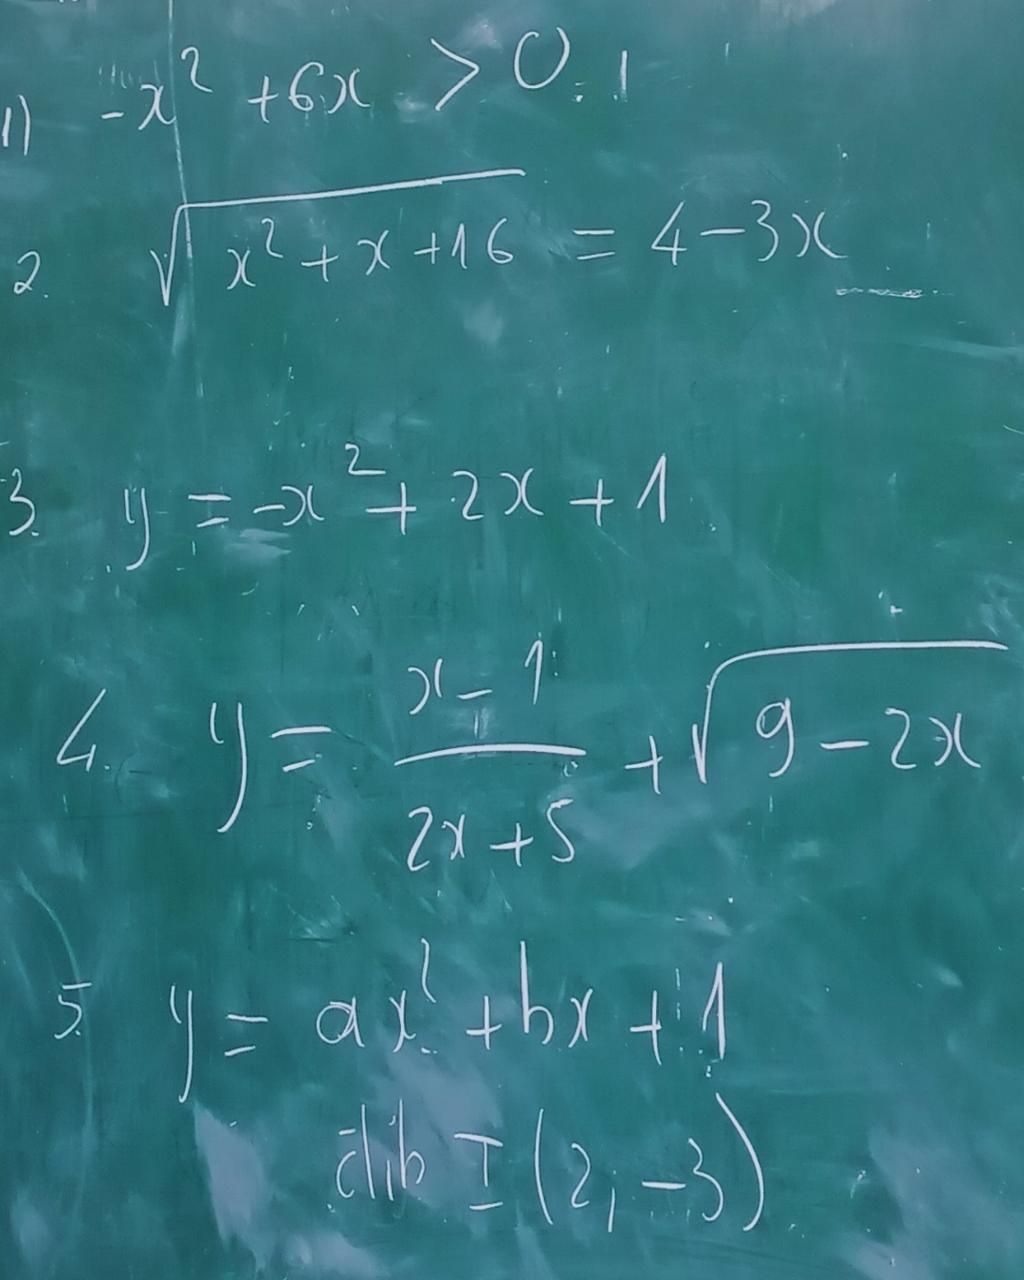 1) -x² + 6x > 0
2. √(x² + x + 16) = 4 - 3x
3. y = -x² + 2x + 1
4. y = (x - 1)/(2x + 5) + √(9 - 2x)
5. y = ax² + bx + 1
I (2; -3)